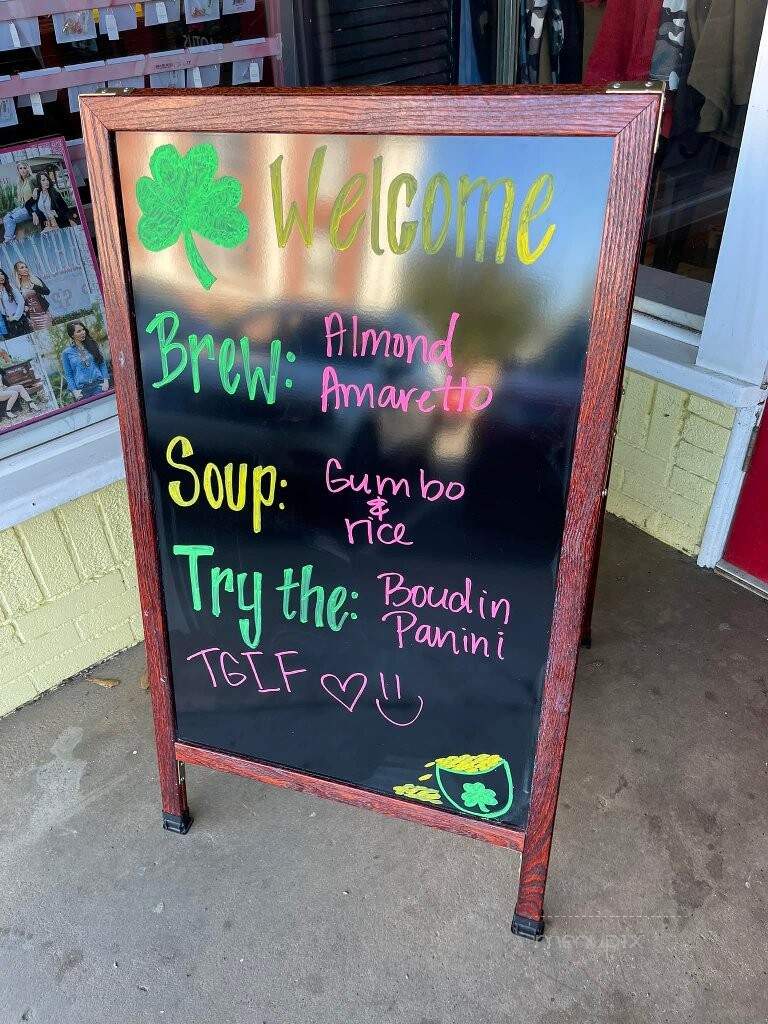 Welcome
Brew: Almond
Amaretto
Soup: Gumbo
&
rice
Try the: Boudin
Panini
TGIF
menupix